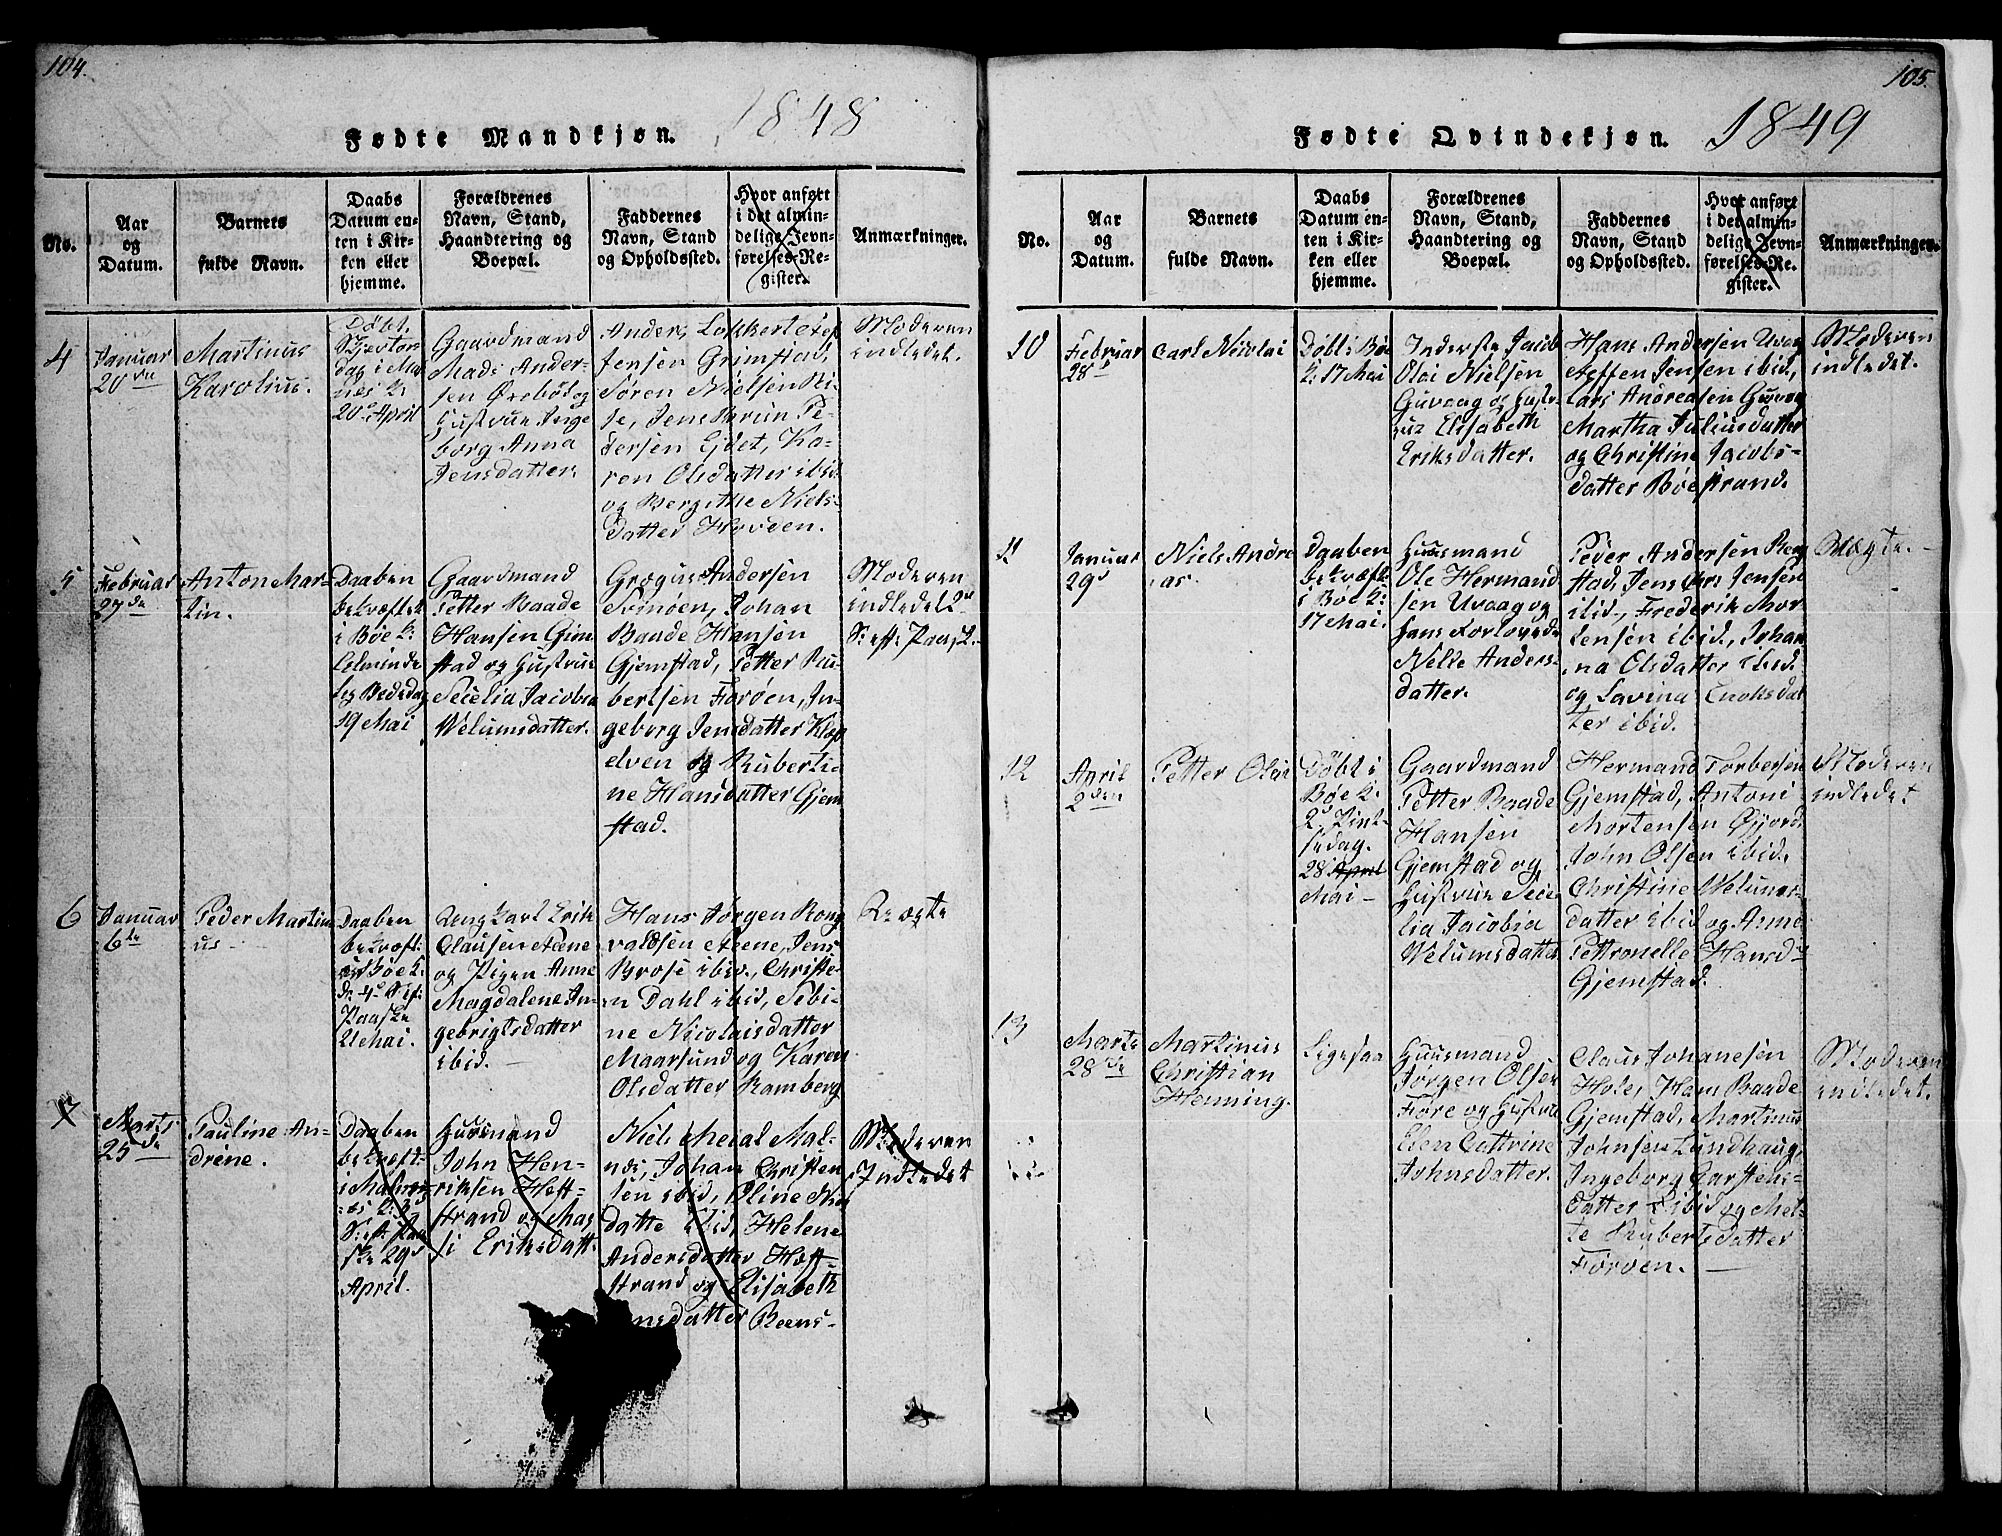 104.
Fødte Mandkjøn.
1848
No.
Aar
og
Datum.
Barnets
fulde Navn.
Daabs
Datum en-
ten i Kir-
ken eller
hjemme.
Forældrenes
Navn, Stand,
Haandtering og
Boepæl.
Faddernes
Navn, Stand
og Opholdssted.
Hvor anført
i det almin-
delige Jevn-
førelses-Re-
gister.
Anmærkninger.
4
Januar
20de
Martinus
Karolius.
Døbt
Skjærtor-
dag i Mal-
nes K:
20de April
Gaardmand
Mads Ander-
sen Ørebøt og
Hustrue Inge
borg Anna
Jensdatter.
Anders
Jensen Grimstad,
Søren Nielsen Ri-
se, Jens Bruun Pe-
dersen Ejdet, Ka-
ren Olsdatter ibid
og Bergithe Niels-
datter Hovden.
Moderen
indledet.
5
Februar
27de
Anton Mar-
tin.
Daaben
bekræftet
i Bøe K:
Alminde
lig Bededag
19 Mai
Gaardmand
Petter Baade
Hansen Gim
stad og Hustrue
Secelia Jacobia
Welumsdatter.
Grægus Andersen
Svinøen, Johan
Baade Hansen
Gjemstad, Petter Ru-
bertsen Forøen, In-
geborg Jensdatter Klæp
elven og Ruberti-
ne Hansdatter Gjem
stad.
Moderen
indledet 2den
S: eft: Paask.
6
Januar
6te
Peder Martin
us
Daaben
bekræft:
i Bøe K:
d. 4de S. ef:
Paaske
21 Mai.
Ungkarl Erik
Clausen Steene
og Pigen Anne
Magdalene In-
gebrigtsdatter
ibid.
Hans Jørgen Rong
valdsen Steene, Jens
Brose ibid., Christe-
n Dahl ibid, Sebi-
ne Nicolaisdatter
Maarsund og Karen
Olsdatter Ramberg
Uægte
7
Marts
25de
Pauline An-
drene.
Daaben
bekræft-
i Malnes
K: 3de
S: eft: Paa
ske 29de
April.
Huusmand
John Hen-
riksen Høft-
strand og Mar
Eriksdatt.
Niels Meial Mal-
næs, Johan Christen
sen ibid, Oline Nils
datte ibid, Helene
Andersdatter Høft-
strand og Elisabeth
Jensdatter Reens-
Moderen
Indledet
105.
Fødte Qvindekjøn.
1849
No.
Aar
og
Datum.
Barnets
fulde Navn.
Daabs
Datum en-
ten i Kir-
ken eller
hjemme.
Forældrenes
Navn, Stand,
Haandtering og
Boepæl.
Faddernes
Navn, Stand
og Opholdssted.
Hvor anført
i det almin-
delige Jevn-
førelses-Re-
gister.
Anmærkninger.
10
Februar
28de
Carl Nicolai
Døbt i Bøe
K: 17 Mai
Inderste Jacob
Olai Nielsen
Guvaag og Hustr-
ue Elisabeth
Eriksdatter.
Hans Andersen Uvaag
Steffen Jensen ibid,
Lars Andreasen Guvaag
Martha Juliusdatter
og Christine Jacobs-
datter Bøestrand.
Moderen
indledet.
11
Januar
29de
Niels Andre
as.
Daaben
bekræft:
i Bøe K:
17 Mai.
Huusmand
Ole Hermand
sen Uvaag og
hans Forlovede
Nelle Anders-
datter.
Peder Andersen Berg
stad, Jens Chr: Jensen
ibid., Frederik Mor-
tensen ibid, Johan
na Olsdatter ibid.
og Lavina Enoksdat
ter ibid.
Uægte.
12
April
2den
Petter Olai
Døbt i
Bøe K:
2den Pint-
sedag.
28 April
Mai
Gaardmand
Petter Baade
Hansen
Gjemstad og
Hustrue Sece
lia Jacobia
Welumsdatter
Hermand Torbersen
Gjemstad, Antoni
Mortensen Gjord.
John Olsen ibid.
Christine Welums-
datter ibid og Anne
Pettronelle Hansd-
Gjemstad.
Moderen
indledet
13
Marts
28de
Martinus
Christian
Henning.
Ligesaa
Huusmand
Jørgen Olsen
Føre og Hustrue
Elen Cathrine
Johnsdatter.
Claus Johanesen
Hole, Hans Baade
Gjemstad, Martinus
Johnsen Lundhaug,
Ingeborg Carstens-
datter ibid og Met-
te Rubertsdatter
Førøen.
Moderen
indledet.